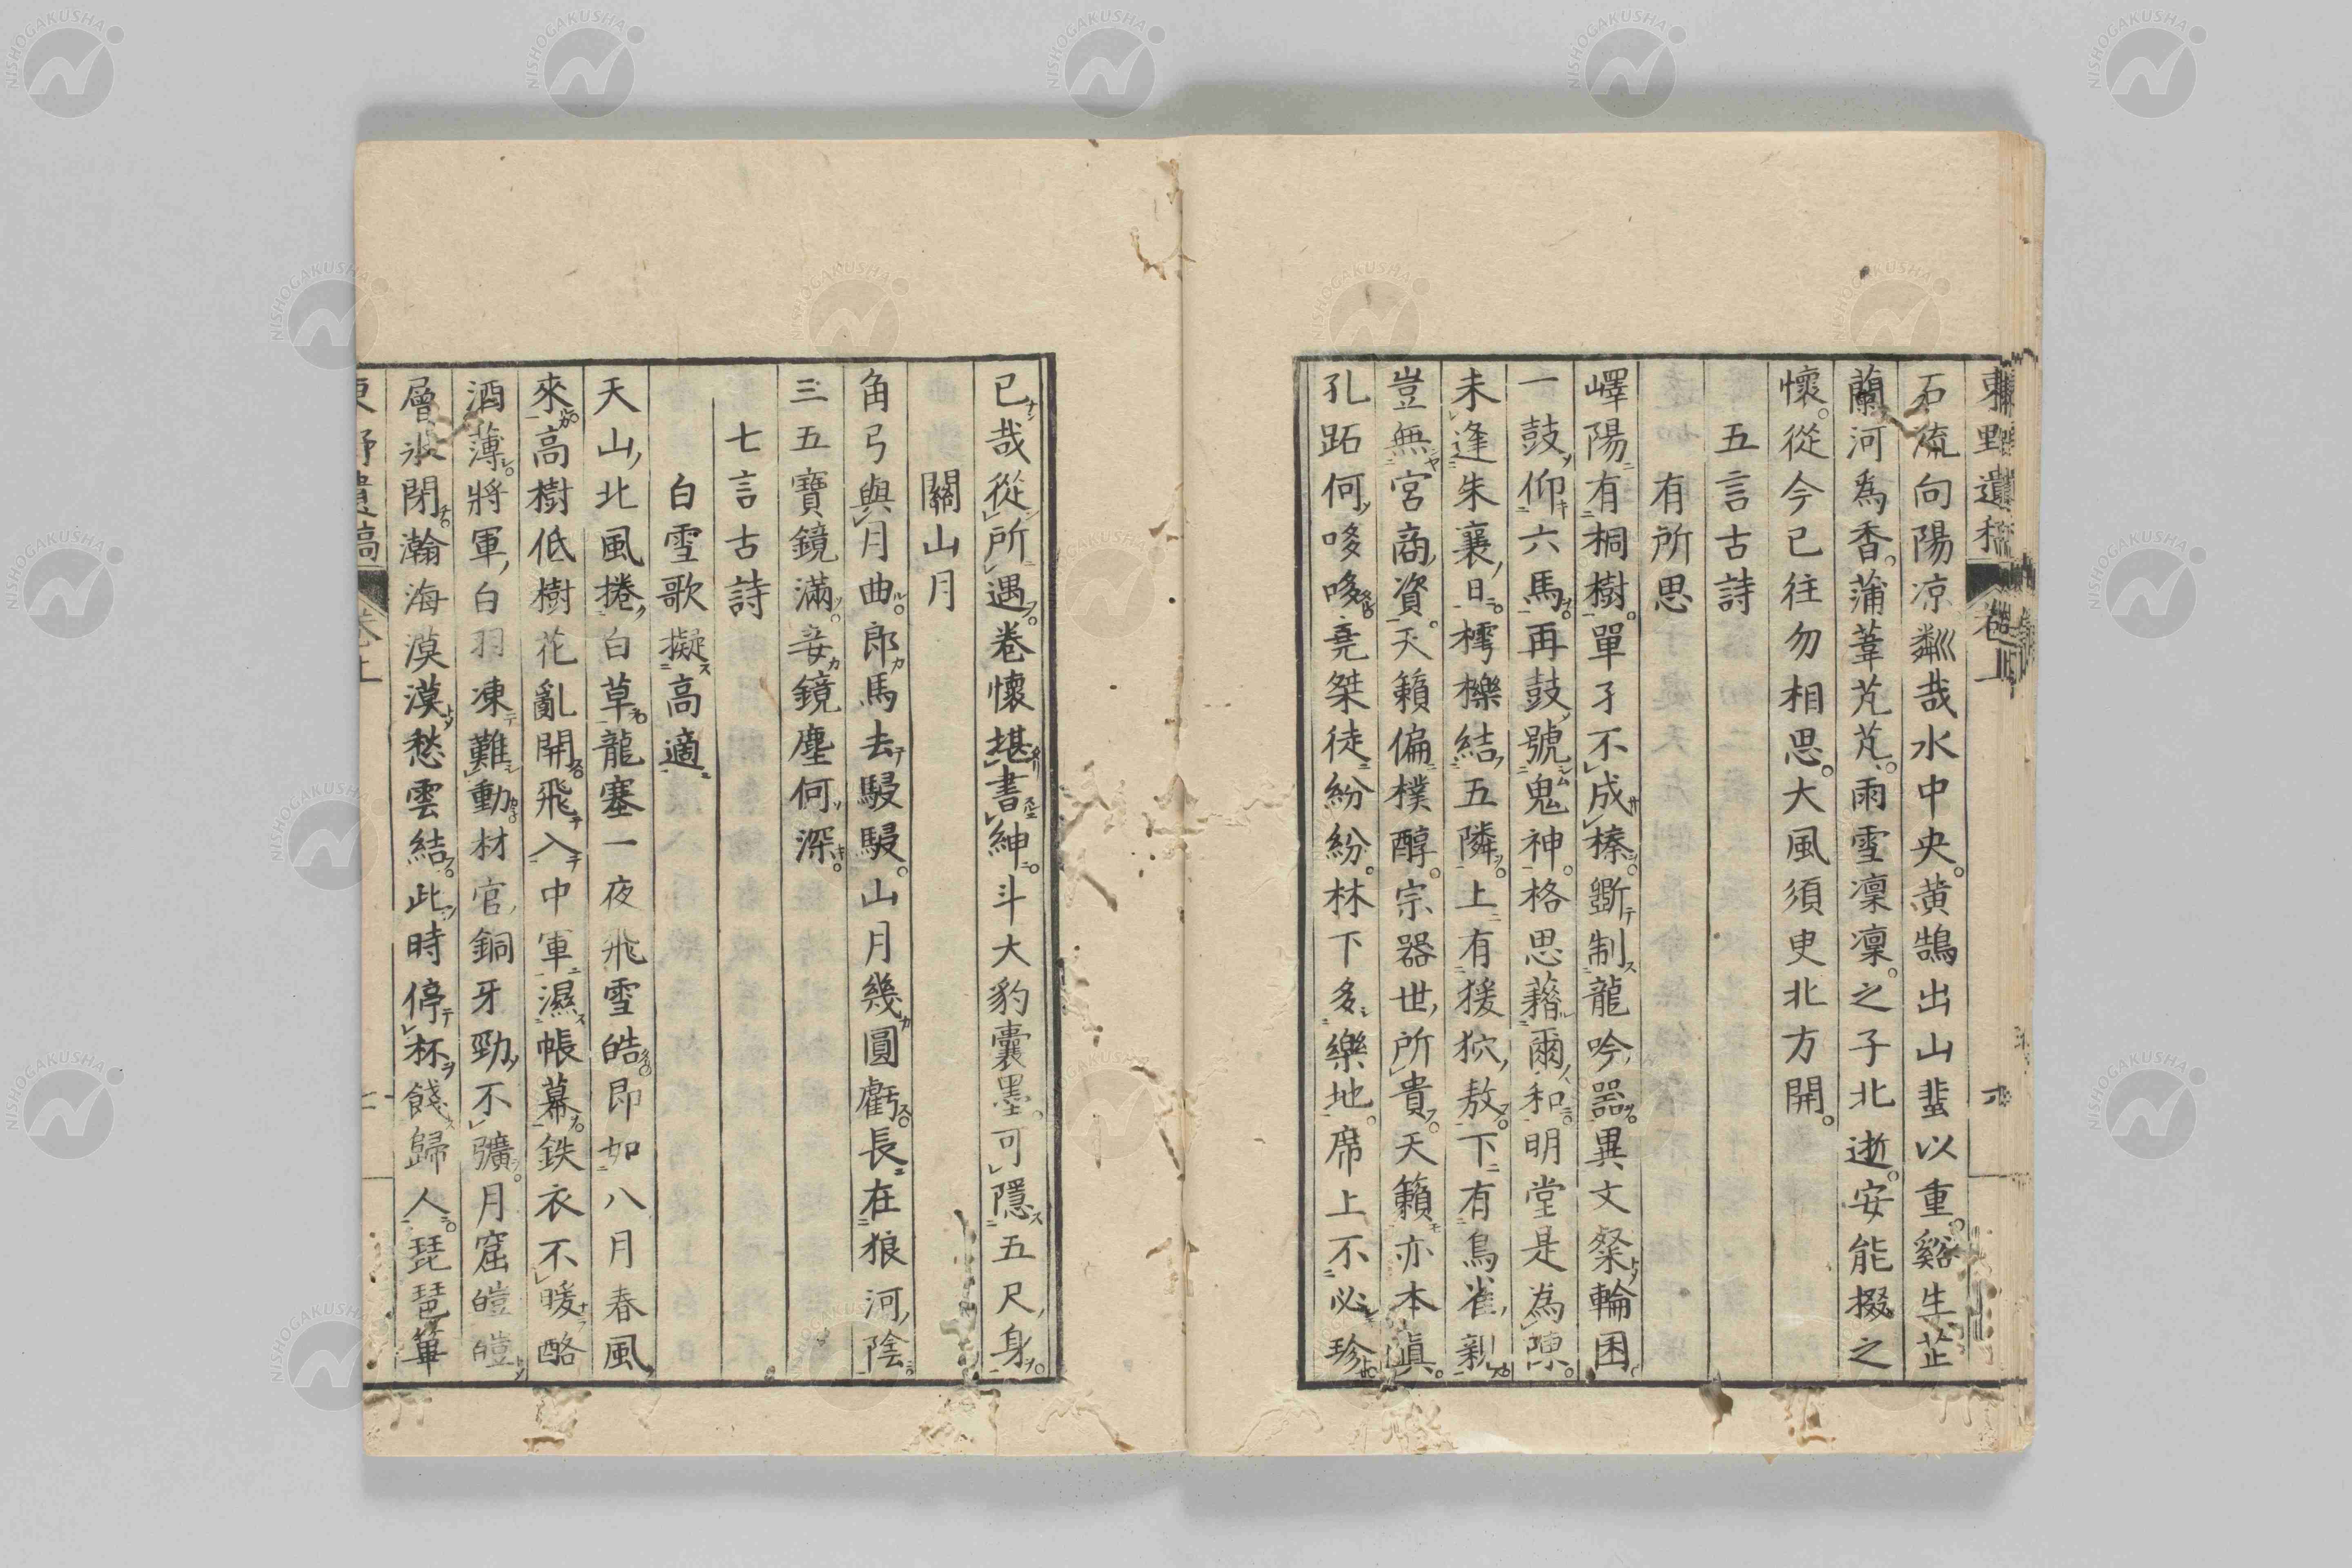 東野遺稿 卷上 六
石流向陽凉粼哉水中央。黃鵠出山蜚以重。谿生芷
蘭河爲香。蒲葦芃芃。雨雪凜凜。之子北逝。安能掇之
懷。從今已往勿相思。大風須臾北方開。
五言古詩
有所思
嶧陽有桐樹。單孑不成榛。斲制龍吟器。異文粲輪囷
一鼓仰六馬。再鼓號鬼神。格思藉爾和。明堂是爲陳。
未逢朱襄日。樗櫟結五隣。上有猨狖敖。下有鳥雀親
豈無宮商資。天籟偏樸醇。宗器世所貴。天籟亦本眞。
孔跖何哆哆。堯桀徒紛紛。林下多樂地。席上不必珍
已哉從所遇。卷懷堪書紳。斗大豹囊墨。可隱五尺身。
關山月
角弓與月曲。郎馬去駸駸。山月幾圓虧。長在狼河陰。
三五寶鏡滿。妾鏡塵何深。
七言古詩
白雪歌擬高適
天山北風捲白草。龍塞一夜飛雪皓。即如八月春風
來。高樹低樹花亂開。飛入中軍濕帳幕。鉄衣不暖酪
酒薄。將軍白羽凍難動。材官銅牙勁不彍。月窟皚皚
層氷閉。瀚海漠漠愁雲結。此時停杯餞歸人。琵琶篳
東野遺稿 卷上 七
NISHOGAKUSHA